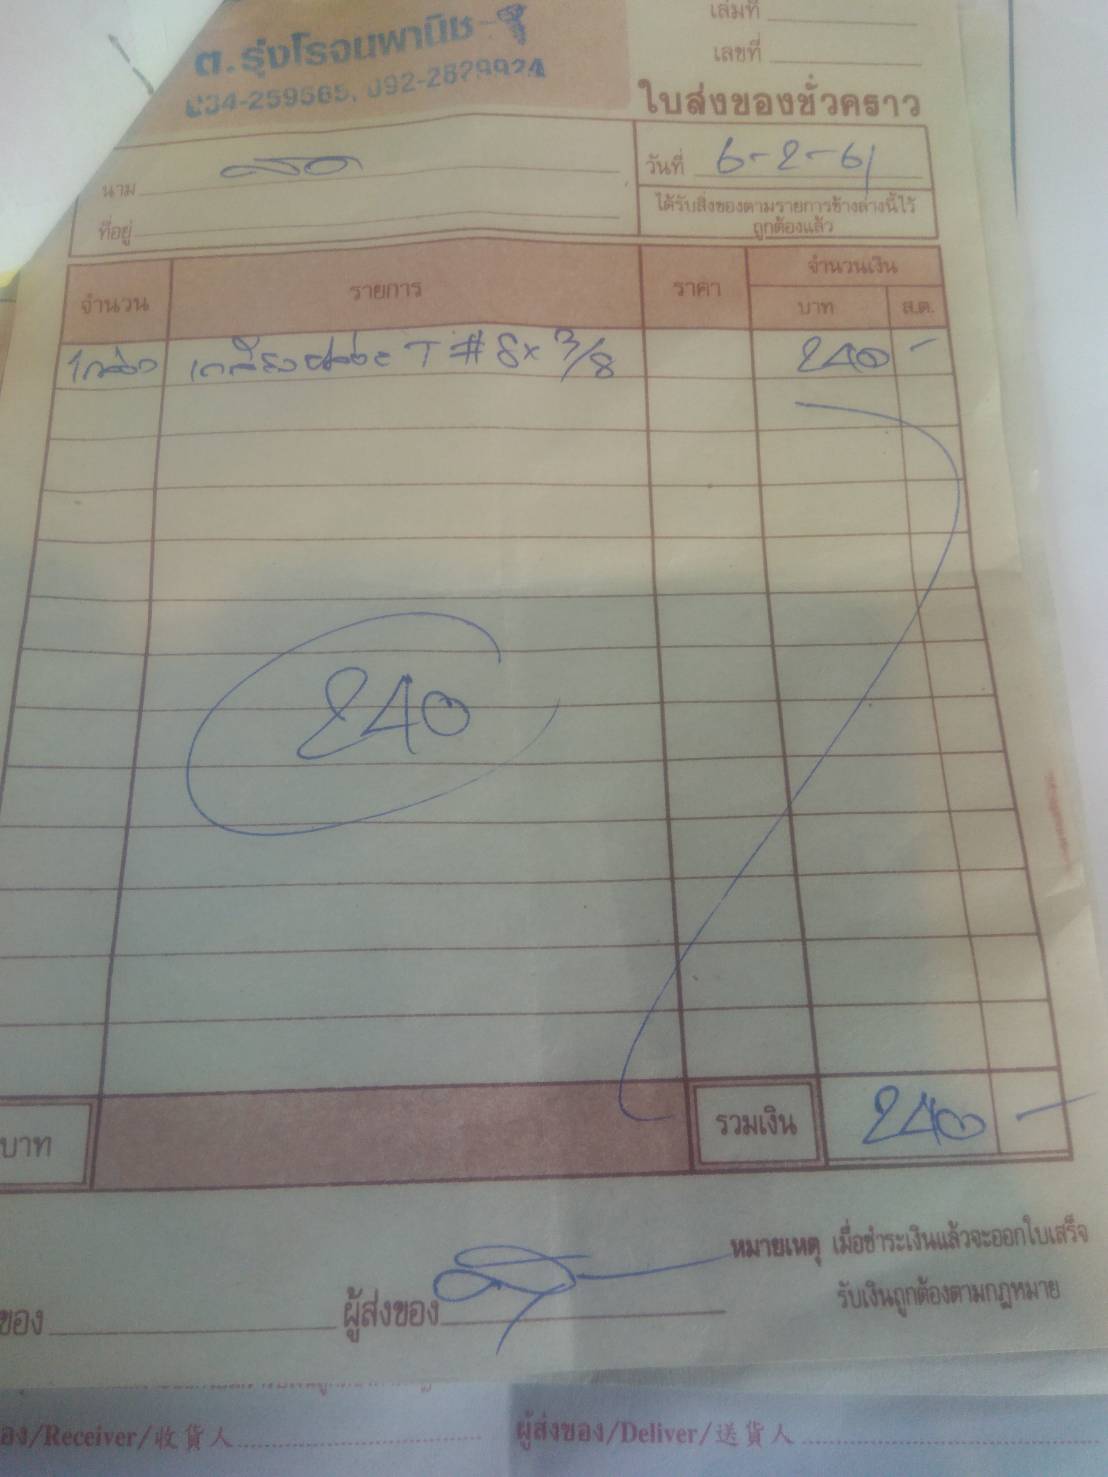 ต.รุ่งโรจนพานิช
034-259565, 092-2629924
เล่มที่
เลขที่
ใบส่งของชั่วคราว
นาม สด
วันที่ 6-2-61
ที่อยู่
ได้รับสิ่งของตามรายการข้างล่างนี้ไว้
ถูกต้องแล้ว
จำนวน รายการ ราคา จำนวนเงิน
บาท ส.ต.
1กล่อง เกลียวปล่อย T # 8x 3/8 240 -
240
บาท รวมเงิน 240 -
หมายเหตุ เมื่อชำระเงินแล้วจะออกใบเสร็จ
รับเงินถูกต้องตามกฎหมาย
ของ ผู้ส่งของ
อง/Receiver/收貨人 ผู้ส่งของ/Deliver/送貨人